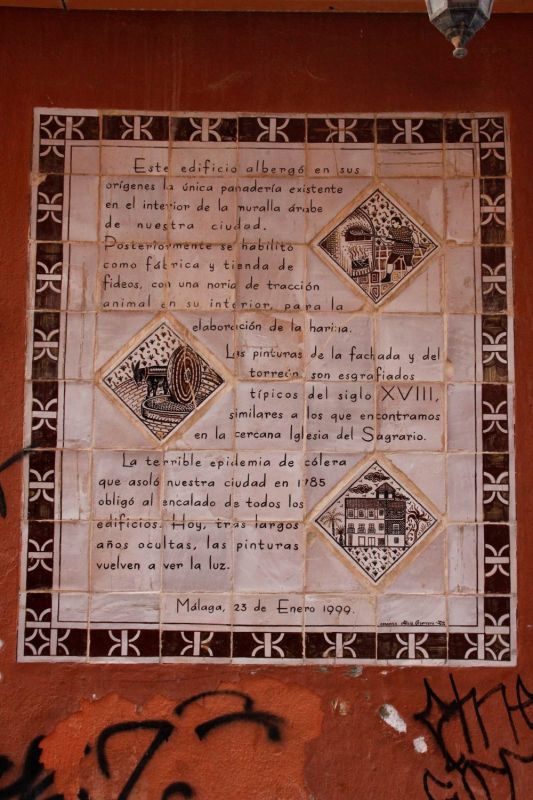 Este edificio albergó en sus
orígenes la única panadería existente
en el interior de la muralla árabe
de nuestra ciudad.
Posteriormente se habilitó
como fábrica y tienda de
fideos, con una noria de tracción
animal en su interior, para la
elaboración de la harina.
Las pinturas de la fachada y del
torreón son esgrafiados
típicos del siglo XVIII,
similares a los que encontramos
en la cercana Iglesia del Sagrario.
La terrible epidemia de cólera
que asoló nuestra ciudad en 1785
obligó al encalado de todos los
edificios. Hoy, tras largos
años ocultas, las pinturas
vuelven a ver la luz.
Málaga, 23 de Enero 1999.